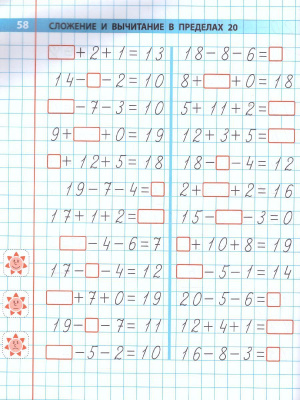 58 СЛОЖЕНИЕ И ВЫЧИТАНИЕ В ПРЕДЕЛАХ 20
□+2+1=13 18-8-6=□
14-□-2=10 8+□+0=18
□-7-3=10 5+11+2=□
9+□+0=19 12+3+5=□
□+12+5=18 18-□-4=12
19-7-4=□ 2+□+2=16
17+1+2=□ 15-□-3=0
□-4-6=7 □+10+8=19
17-□-4=12 □-5-1=14
□+7+0=19 20-5-6=□
19-□-7=11 12+4+1=□
□-5-2=10 16-8-3=□